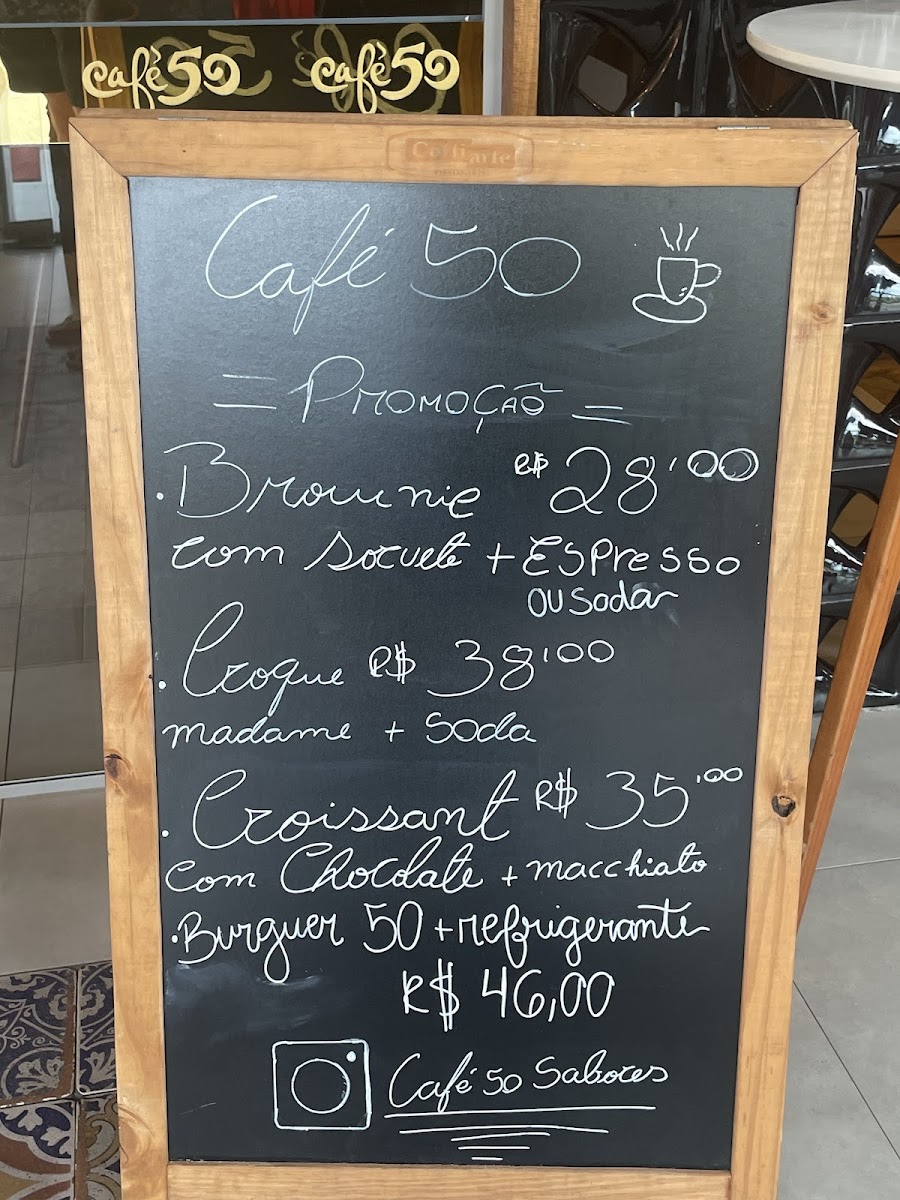 café50 café50
Café 50
= Promoção =
. Brownie R$ 28,00
com sorvete + Espresso
ou soda
. Croque R$ 38,00
madame + soda
. Croissant R$ 35,00
com Chocolate + macchiato
. Burguer 50 + refrigerante
R$ 46,00
Café 50 Sabores